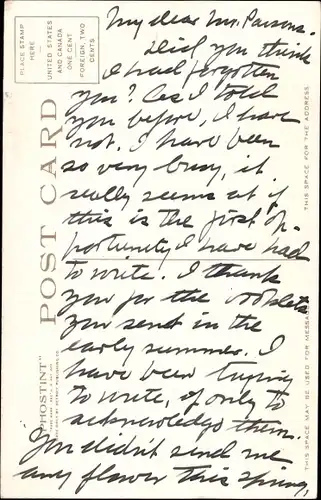 My dear Mr. Parsons.
Did you think
I had forgotten
you? As I told
you before, I have
not. I have been
so very busy, it
really seems as if
this is the first op-
portunity I have had
to write. I thank
you for the booklets
you sent in the
early summer. I
have been trying
to write, if only to
acknowledge them.
You didn't send me
any flower this spring,
PLACE STAMP
HERE
UNITED STATES
AND CANADA
ONE CENT
FOREIGN, TWO
CENTS
POST CARD
"PHOSTINT"
THIS SPACE FOR THE ADDRESS
THIS SPACE MAY BE USED FOR MESSAGE